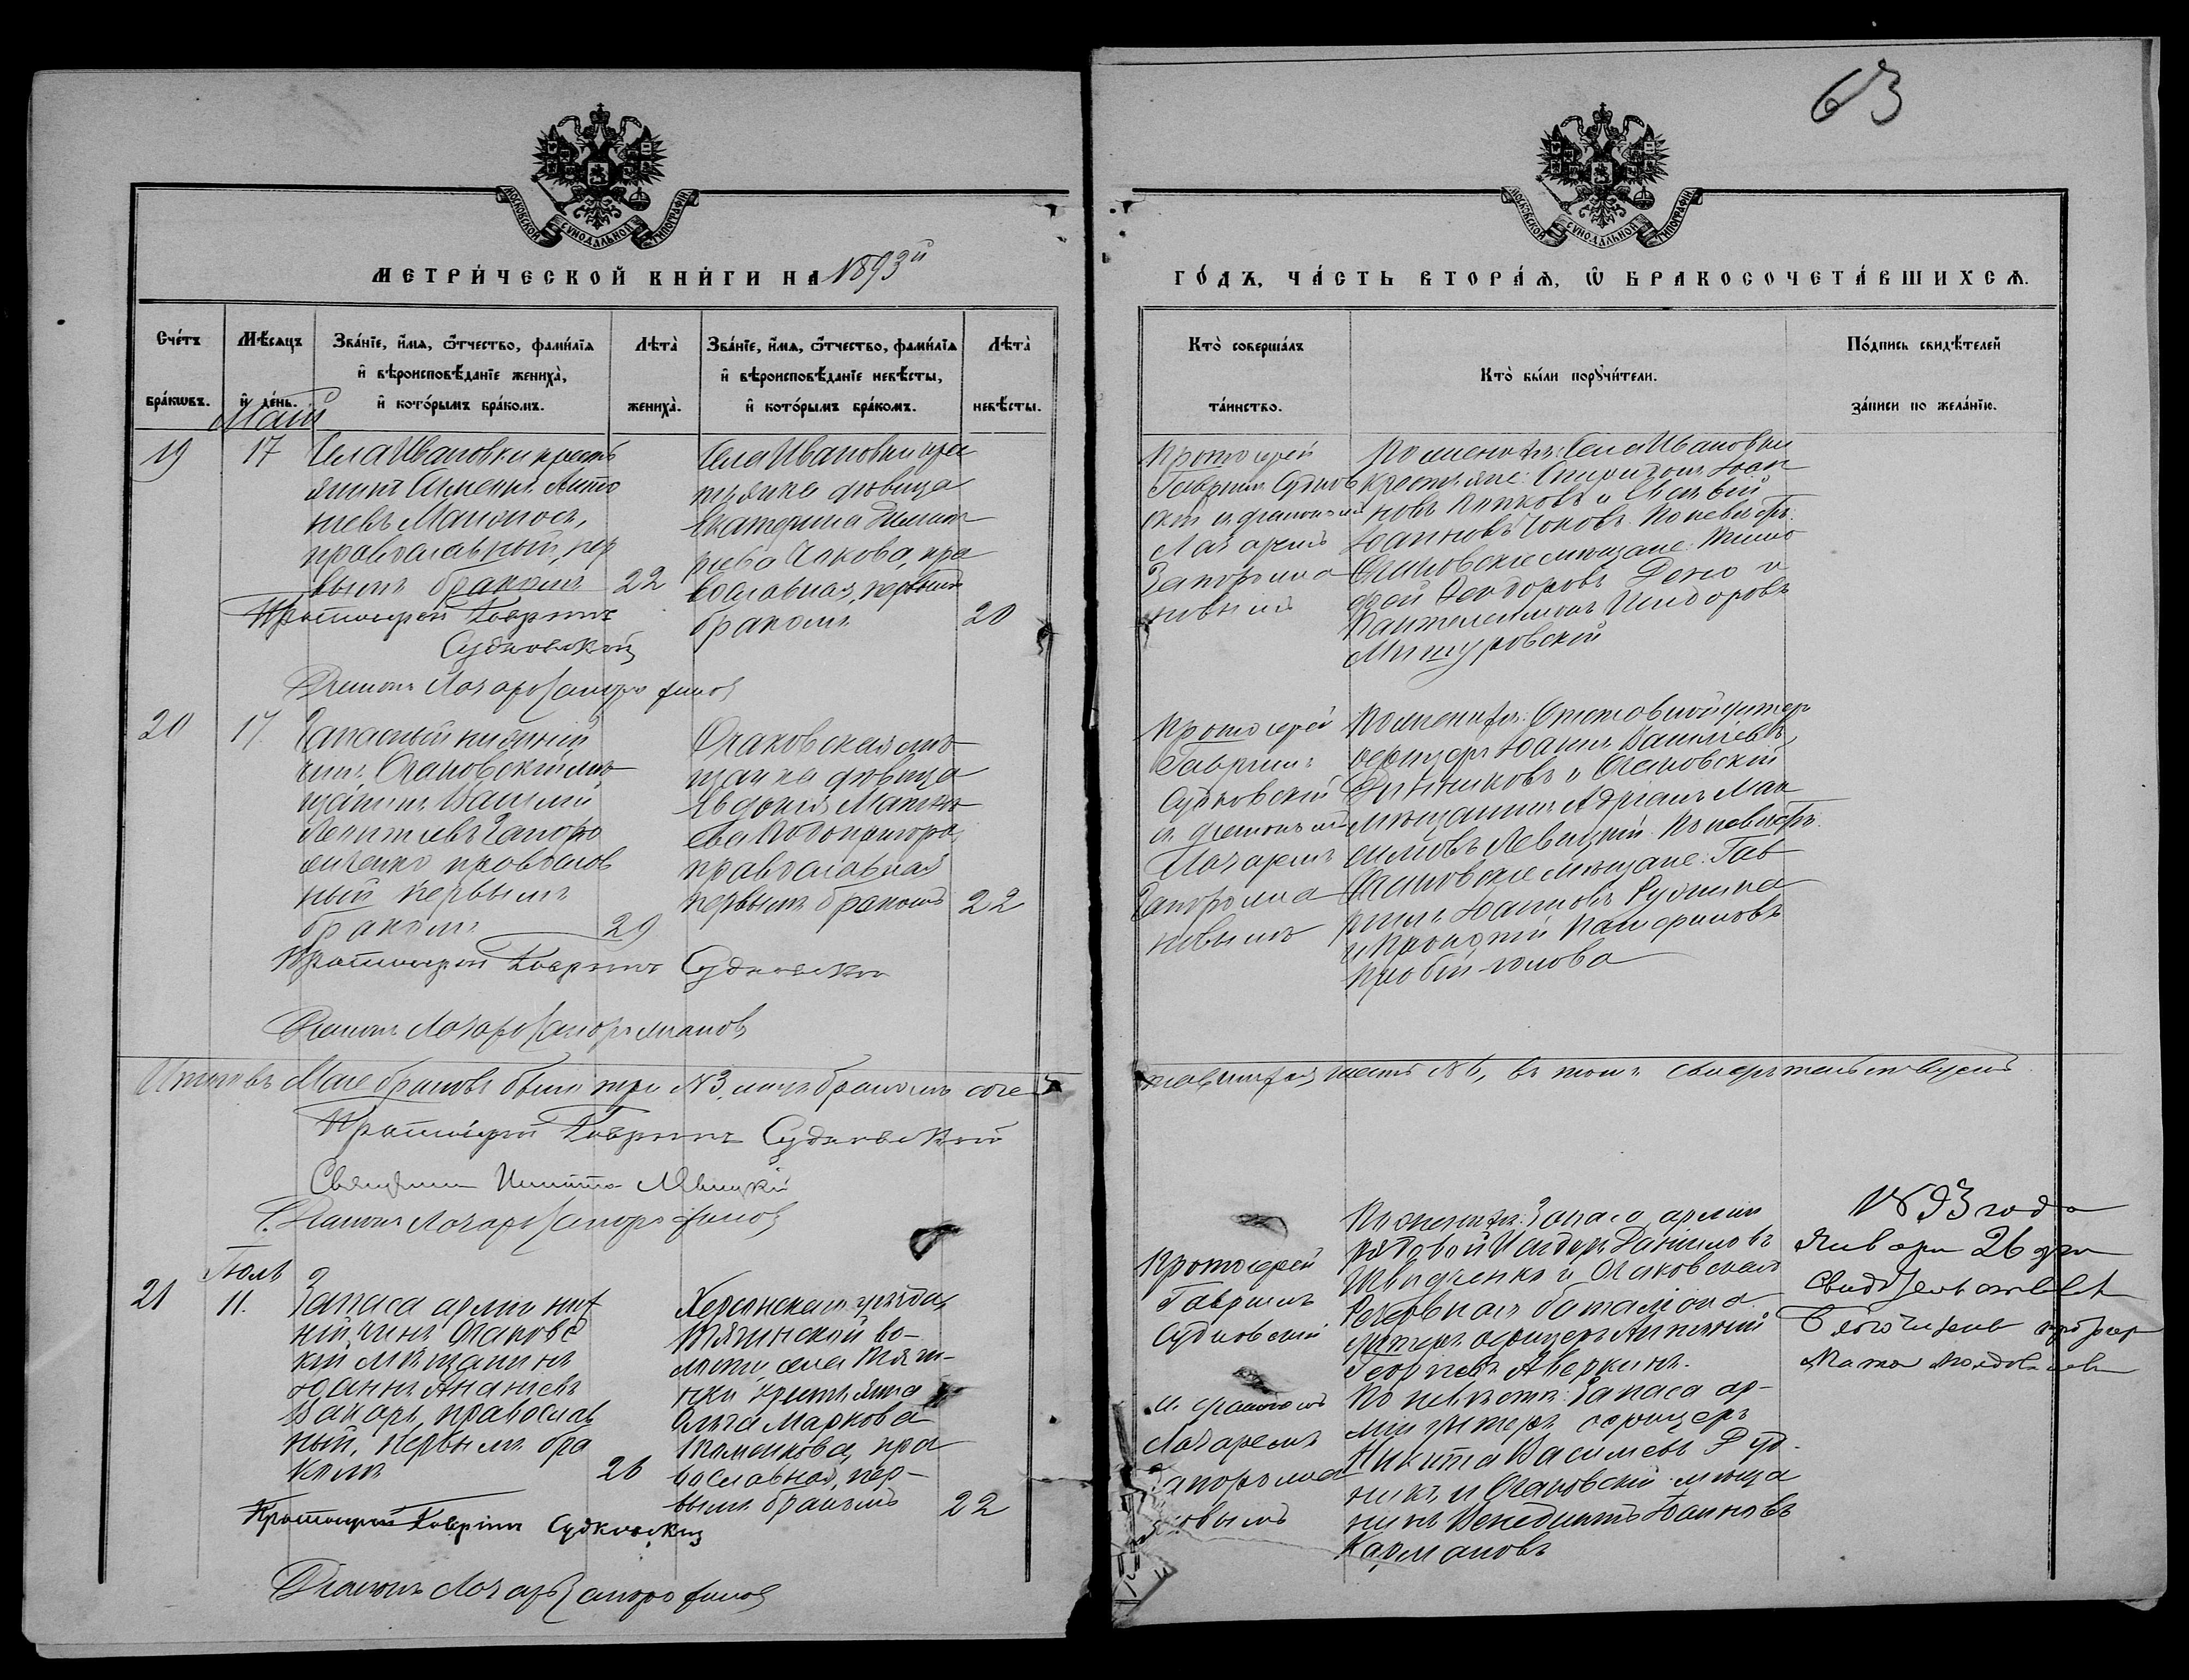 63
МОСКОВСКОЙ СѴНОДАЛЬНОЙ ТИПОГРАФІИ
МОСКОВСКОЙ СѴНОДАЛЬНОЙ ТИПОГРАФІИ
МЕТРИ́ЧЕСКОЙ КНИ́ГИ НА 1893й
ГО́ДЪ, ЧА́СТЬ ВТОРА́Ѧ, Ѽ БРАКОСОЧЕТА́ВШИХСѦ.
Сче́тъ бра́кѡвъ.
Мѣ́сѧцъ и҆ де́нь.
Зва́нїе, и҆́мѧ, ѻ҆́тчество, фами́лїѧ
и҆ вѣроисповѣ́данїе жениха̀,
и҆ кото́рымъ бра́комъ.
Лѣта̀ жениха̀.
Зва́нїе, и҆́мѧ, ѻ҆́тчество, фами́лїѧ
и҆ вѣроисповѣ́данїе невѣ́сты,
и҆ кото́рымъ бра́комъ.
Лѣта̀ невѣ́сты.
Кто̀ соверша́лъ та́инство.
Кто̀ бы́ли порꙋчи́тели.
По́дпись свидѣ́телей за́писи по жела́нїю.
Май
19
17
Села Ивановки кресть
янинъ
православный, пер
вымъ бракомъ
22
Села Ивановки кре
стьянка дѣвица
Екатерина Димит
ріева Чокова, пра
вославная, первымъ
бракомъ
20
Протоіерей
Гавріилъ Судков
скій съ діакономъ
Лазаремъ
Запорожа
новымъ
По женихѣ: Села Ивановки
крестьяне: Спиридонъ Іоан
новъ
Іоанновъ Чоковъ. По невѣстѣ:
Очаковскіе мѣщане: Тимо
фей Ѳеодоровъ и
Пантелеимонъ Исидоровъ
Мишуровскій
Протоіерей Гавріилъ
Судковскій
Діаконъ Лазарь Запорожановъ
20
17.
Запасный нижній
чинъ Очаковскій мѣ
щанинъ Василій
Леонтіевъ Запоро
женко православ
ный первымъ
бракомъ
29
Очаковская мѣ
щанка дѣвица
Евдокія
православная
первымъ бракомъ
22
Протоіерей
Гавріилъ
Судковскій
съ діакономъ
Лазаремъ
Запорожа
новымъ
По женихѣ: Отставной унтеръ
офицеръ Іоаннъ Василіевъ
и Очаковскій
мѣщанинъ Адріанъ Мак
симовъ Левицкій. По невѣстѣ:
Очаковскіе мѣщане: Гав
ріилъ Іоанновъ
и
Пробій-голова
Протоіерей Гавріилъ Судковскій
Діаконъ Лазарь Запорожановъ
Итого въ Маѣ браковъ было три №3, лицъ бракомъ соче
тавшихся шесть №6, въ томъ свидѣтельствуемъ
Протоіерей Гавріилъ Судковскій
Священникъ Левицкій
Діаконъ Лазарь Запорожановъ
Іюль
21
11.
Запаса арміи ниж
ній чинъ Очаковс
кій мѣщанинъ
Іоаннъ Ананіевъ
православ
ный, первымъ бра
комъ
26
Херсонскаго уѣзда,
Тягинской во-
лости, села Тягин-
ки крестьянка
Ольга Маркова
пра
вославная, пер-
вымъ бракомъ
22
Протоіерей
Гавріилъ
Судковскій
съ діакономъ
Лазаремъ
Запорожа
новымъ
По женихѣ: Запаса арміи
рядовой Исидоръ Даниловъ
Швидченко и Очаковскаго
баталіона
унтеръ офицеръ
Георгіевъ Аверкинъ.
По невѣстѣ: Запаса ар-
міи унтеръ офицеръ
Никита Василіевъ Руд-
никъ и Очаковскій мѣща
нинъ Венедиктъ Іоанновъ
Кармановъ
1893 года
Января 26 дня
Протоіерей Гавріилъ Судковскій
Діаконъ Лазарь Запорожановъ